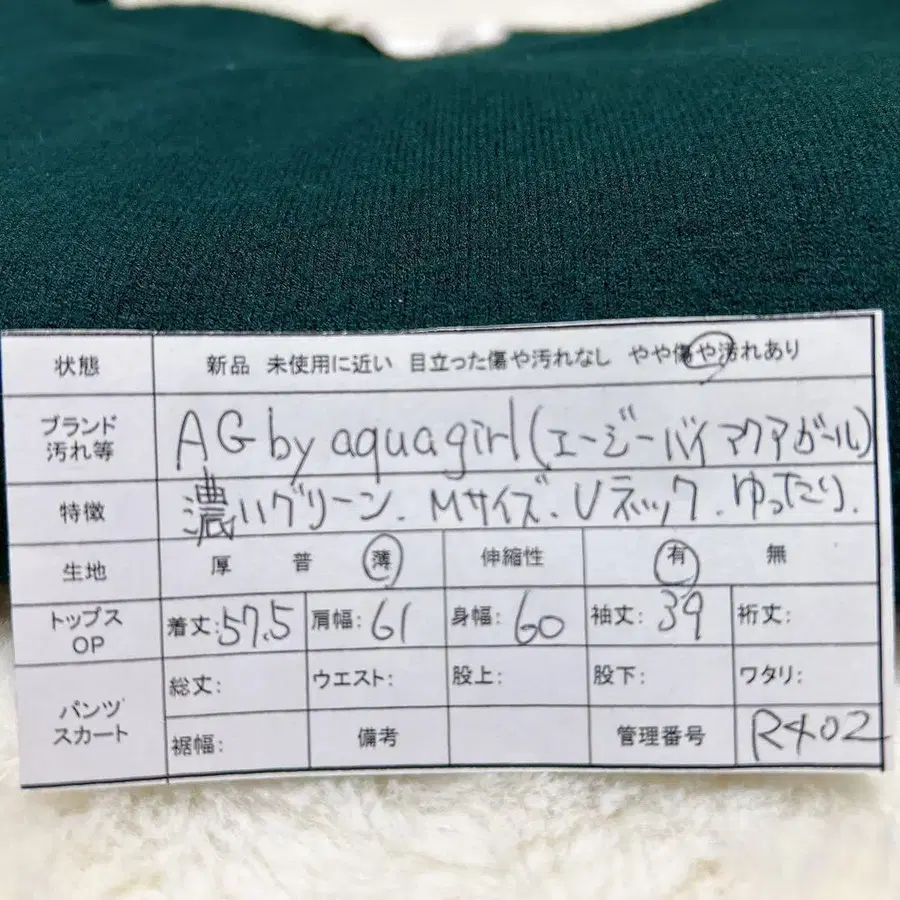 状態 新品 未使用に近い 目立った傷や汚れなし やや傷や汚れあり
ブランド 汚れ等 AG by aquagirl(エージーバイアクアガール)
特徴 濃いグリーン.Mサイズ.Uネック.ゆったり.
生地 厚 普 薄 伸縮性 有 無
トップス OP 着丈:57.5 肩幅:61 身幅:60 袖丈:39 裄丈:
パンツ スカート 総丈: ウエスト: 股上: 股下: ワタリ:
裾幅: 備考 管理番号 R402